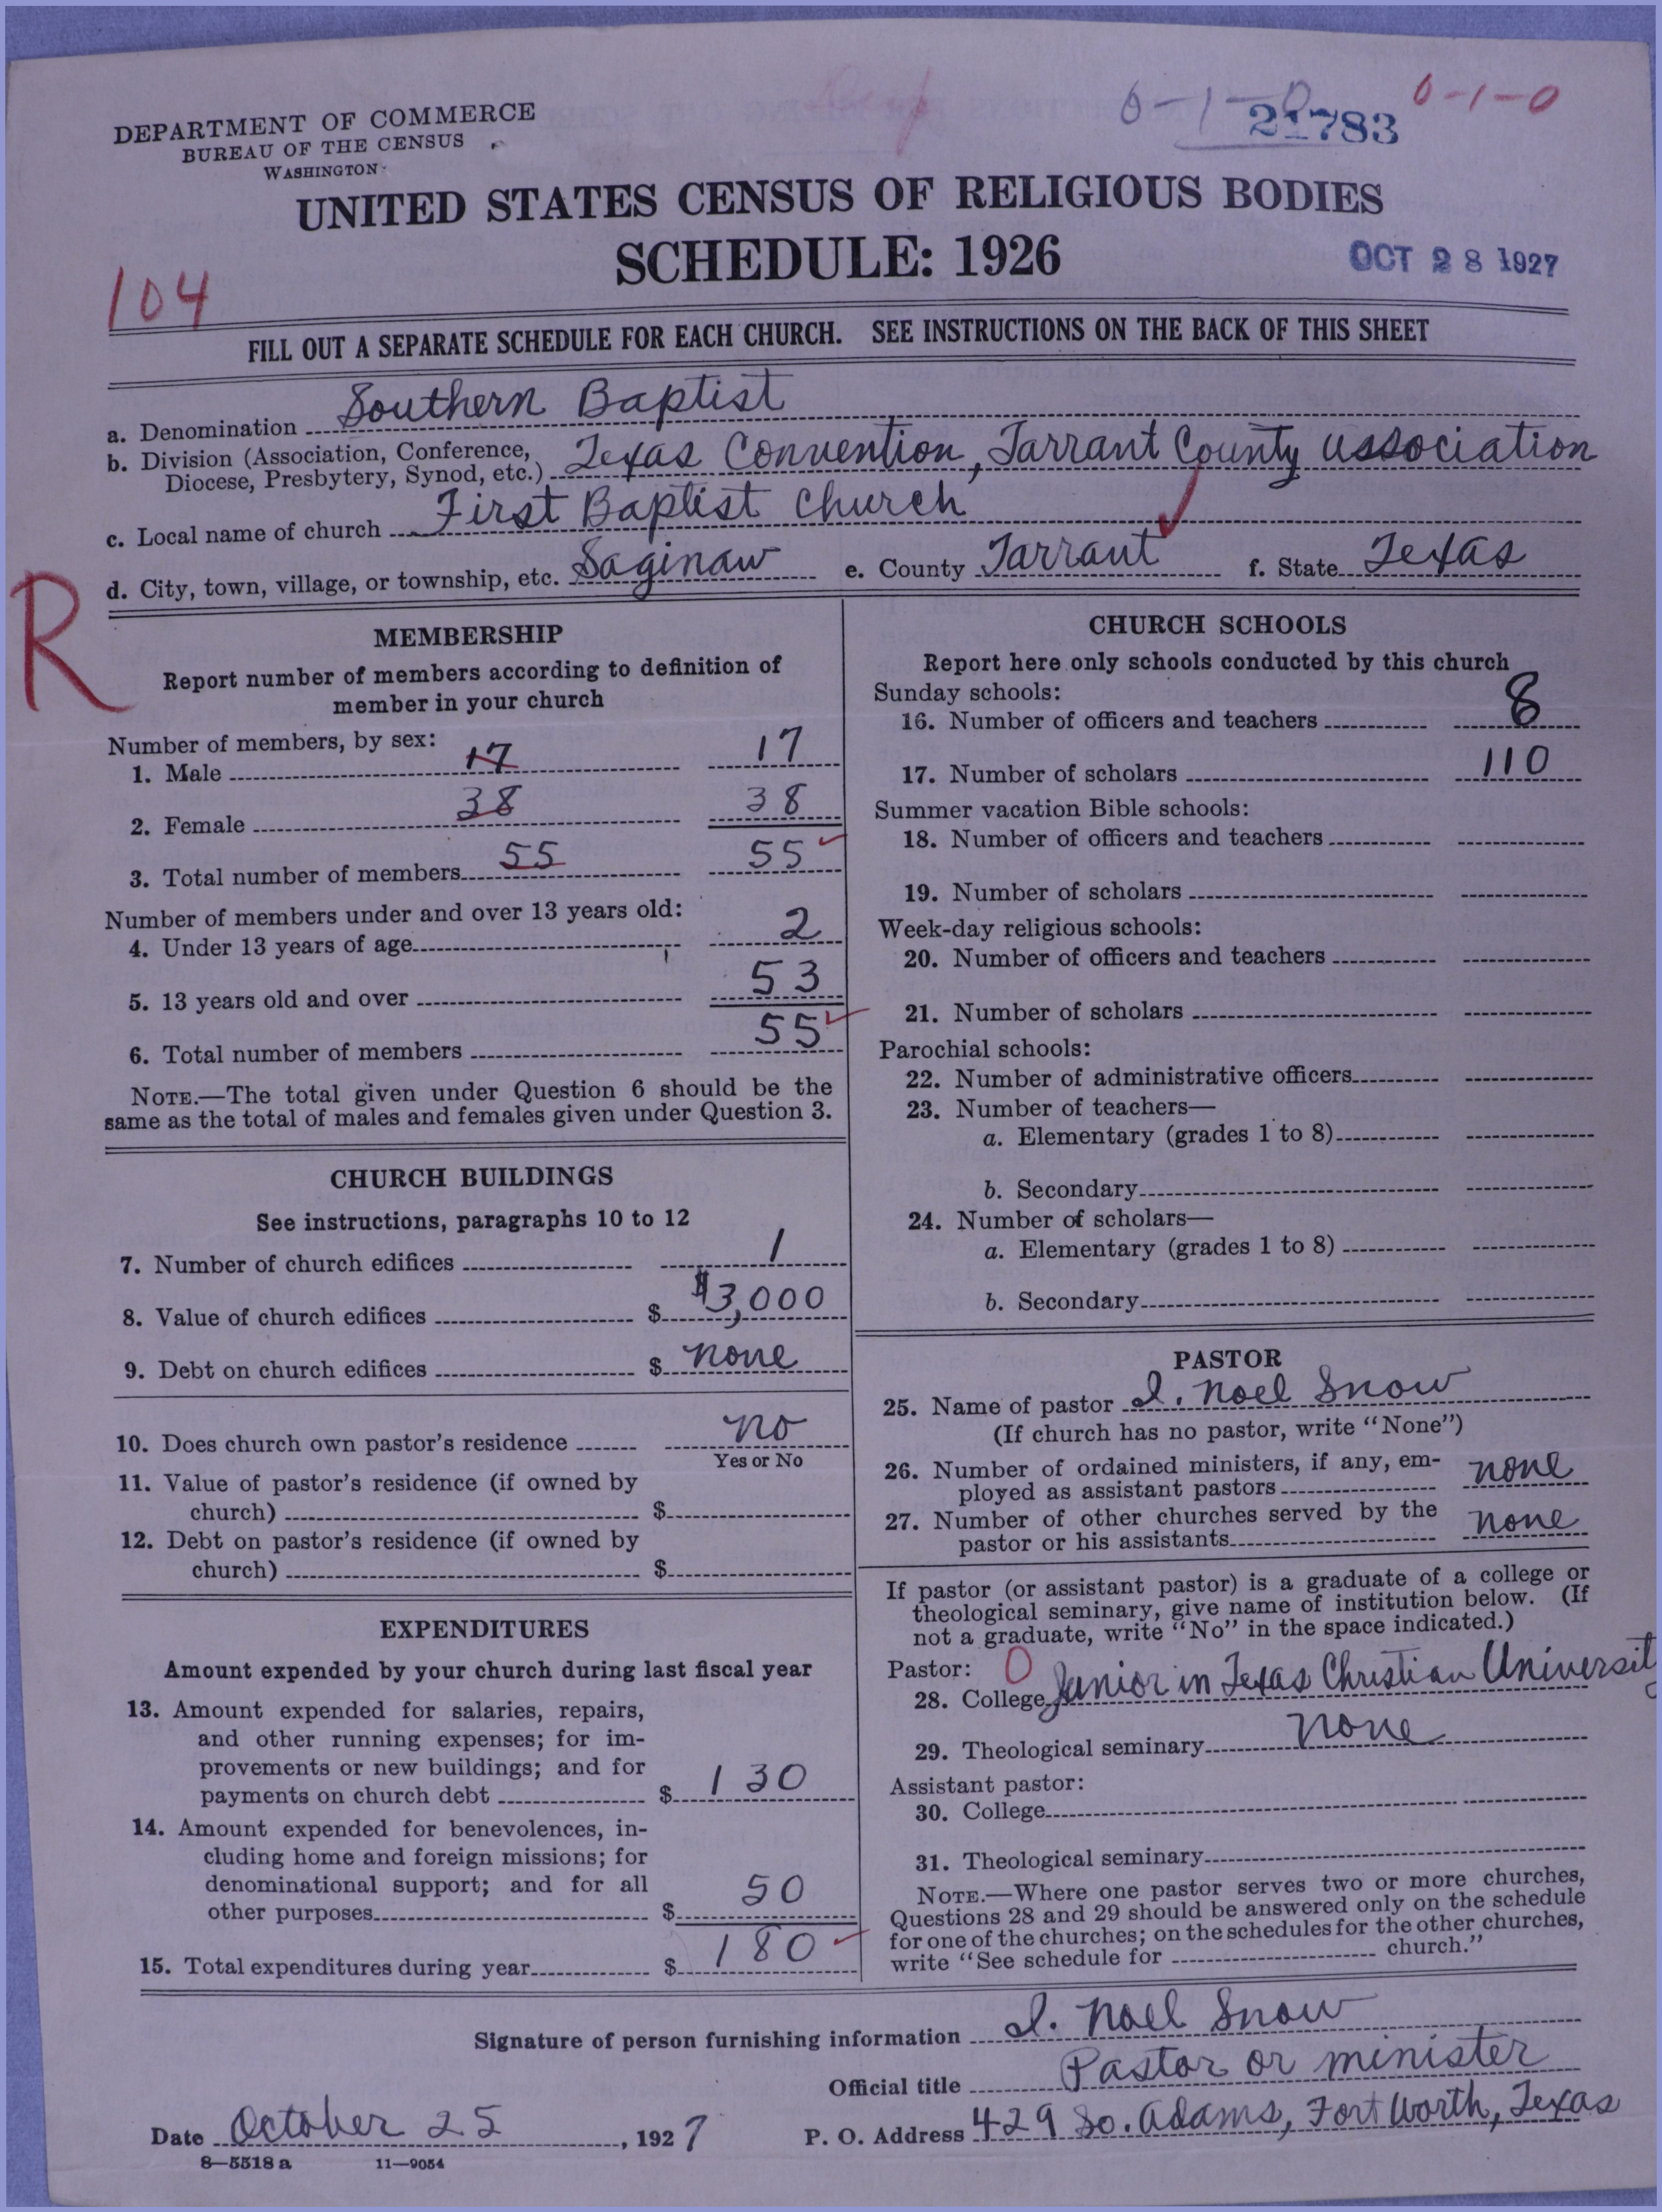 0-1-0
21783
0-1-0
DEPARTMENT OF COMMERCE
BUREAU OF THE CENSUS
WASHINGTON
UNITED STATES CENSUS OF RELIGIOUS BODIES
SCHEDULE: 1926
OCT 28 1927
104
FILL OUT A SEPARATE SCHEDULE FOR EACH CHURCH. SEE INSTRUCTIONS ON THE BACK OF THIS SHEET
a. Denomination Southern Baptist
b. Division (Association, Conference,
Diocese, Presbytery, Synod, etc.) Texas Convention, Tarrant County association
c. Local name of church First Baptist Church
d. City, town, village, or township, etc. Saginaw e. County Tarrant f. State Texas
R
MEMBERSHIP
Report number of members according to definition of
member in your church
Number of members, by sex:
1. Male 17 17
2. Female 38 38
3. Total number of members 55 55
Number of members under and over 13 years old:
4. Under 13 years of age 2
5. 13 years old and over 53
6. Total number of members 55
NOTE.—The total given under Question 6 should be the
same as the total of males and females given under Question 3.
CHURCH BUILDINGS
See instructions, paragraphs 10 to 12
7. Number of church edifices 1
8. Value of church edifices $ $3,000
9. Debt on church edifices $ none
10. Does church own pastor's residence no
Yes or No
11. Value of pastor's residence (if owned by
church) $
12. Debt on pastor's residence (if owned by
church) $
EXPENDITURES
Amount expended by your church during last fiscal year
13. Amount expended for salaries, repairs,
and other running expenses; for im-
provements or new buildings; and for
payments on church debt $ 130
14. Amount expended for benevolences, in-
cluding home and foreign missions; for
denominational support; and for all
other purposes $ 50
15. Total expenditures during year $ 180
CHURCH SCHOOLS
Report here only schools conducted by this church
Sunday schools:
16. Number of officers and teachers 8
17. Number of scholars 110
Summer vacation Bible schools:
18. Number of officers and teachers
19. Number of scholars
Week-day religious schools:
20. Number of officers and teachers
21. Number of scholars
Parochial schools:
22. Number of administrative officers
23. Number of teachers—
a. Elementary (grades 1 to 8)
b. Secondary
24. Number of scholars—
a. Elementary (grades 1 to 8)
b. Secondary
PASTOR
25. Name of pastor I. Noel Snow
(If church has no pastor, write "None")
26. Number of ordained ministers, if any, em-
ployed as assistant pastors none
27. Number of other churches served by the
pastor or his assistants none
If pastor (or assistant pastor) is a graduate of a college or
theological seminary, give name of institution below. (If
not a graduate, write "No" in the space indicated.)
Pastor: 0
28. College Junior in Texas Christian University
29. Theological seminary none
Assistant pastor:
30. College
31. Theological seminary
NOTE.—Where one pastor serves two or more churches,
Questions 28 and 29 should be answered only on the schedule
for one of the churches; on the schedules for the other churches,
write "See schedule for church."
Signature of person furnishing information I. Noel Snow
Official title Pastor or minister
Date October 25, 1927 P. O. Address 429 So. Adams, Fort Worth, Texas
8—5518 a 11—9054